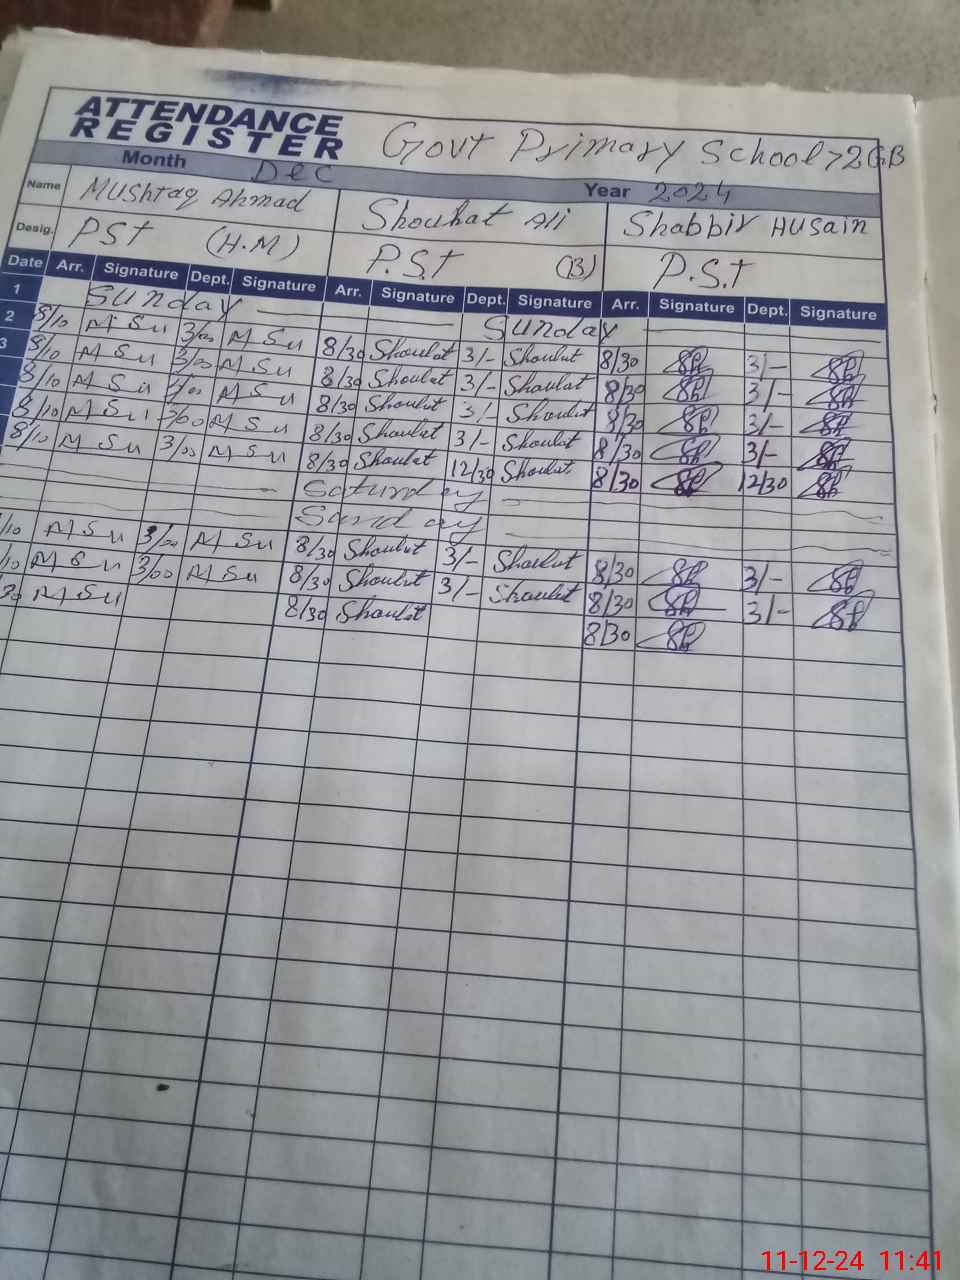 ATTENDANCE
REGISTER
Govt Primary School 72GB
Month Dec Year 2024
Name Mushtaq Ahmad Shoukat Ali Shabbir Husain
Desig. PST (H.M) P.S.T (B) P.S.T
Date Arr. Signature Dept. Signature Arr. Signature Dept. Signature Arr. Signature Dept. Signature
1 Sunday Sunday
2 8/10 3/00 8/30 Shoukat 3/- Shoukat 8/30 3/-
3 8/10 3/00 8/30 Shoukat 3/- Shoukat 8/30 3/-
8/10 8/30 Shoukat 3/- Shoukat 8/30 3/-
8/10 3/00 8/30 Shoukat 3/- Shoukat 8/30 3/-
8/10 3/00 8/30 Shoukat 12/30 Shoukat 8/30 12/30
Saturday
Sunday
/10 3/00 8/30 Shoukat 3/- Shoukat 8/30 3/-
/10 3/00 8/30 Shoukat 3/- Shoukat 8/30 3/-
8/30 Shoukat 8/30
11-12-24 11:41